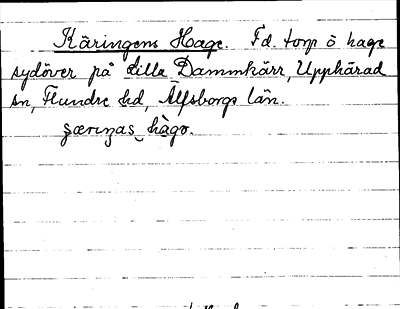 Käringens Hage. Fd. torp o hage
sydöver på Lilla Dammkärr, Upphärad
sn, Flundre hd, Älfsborgs län.
hago.